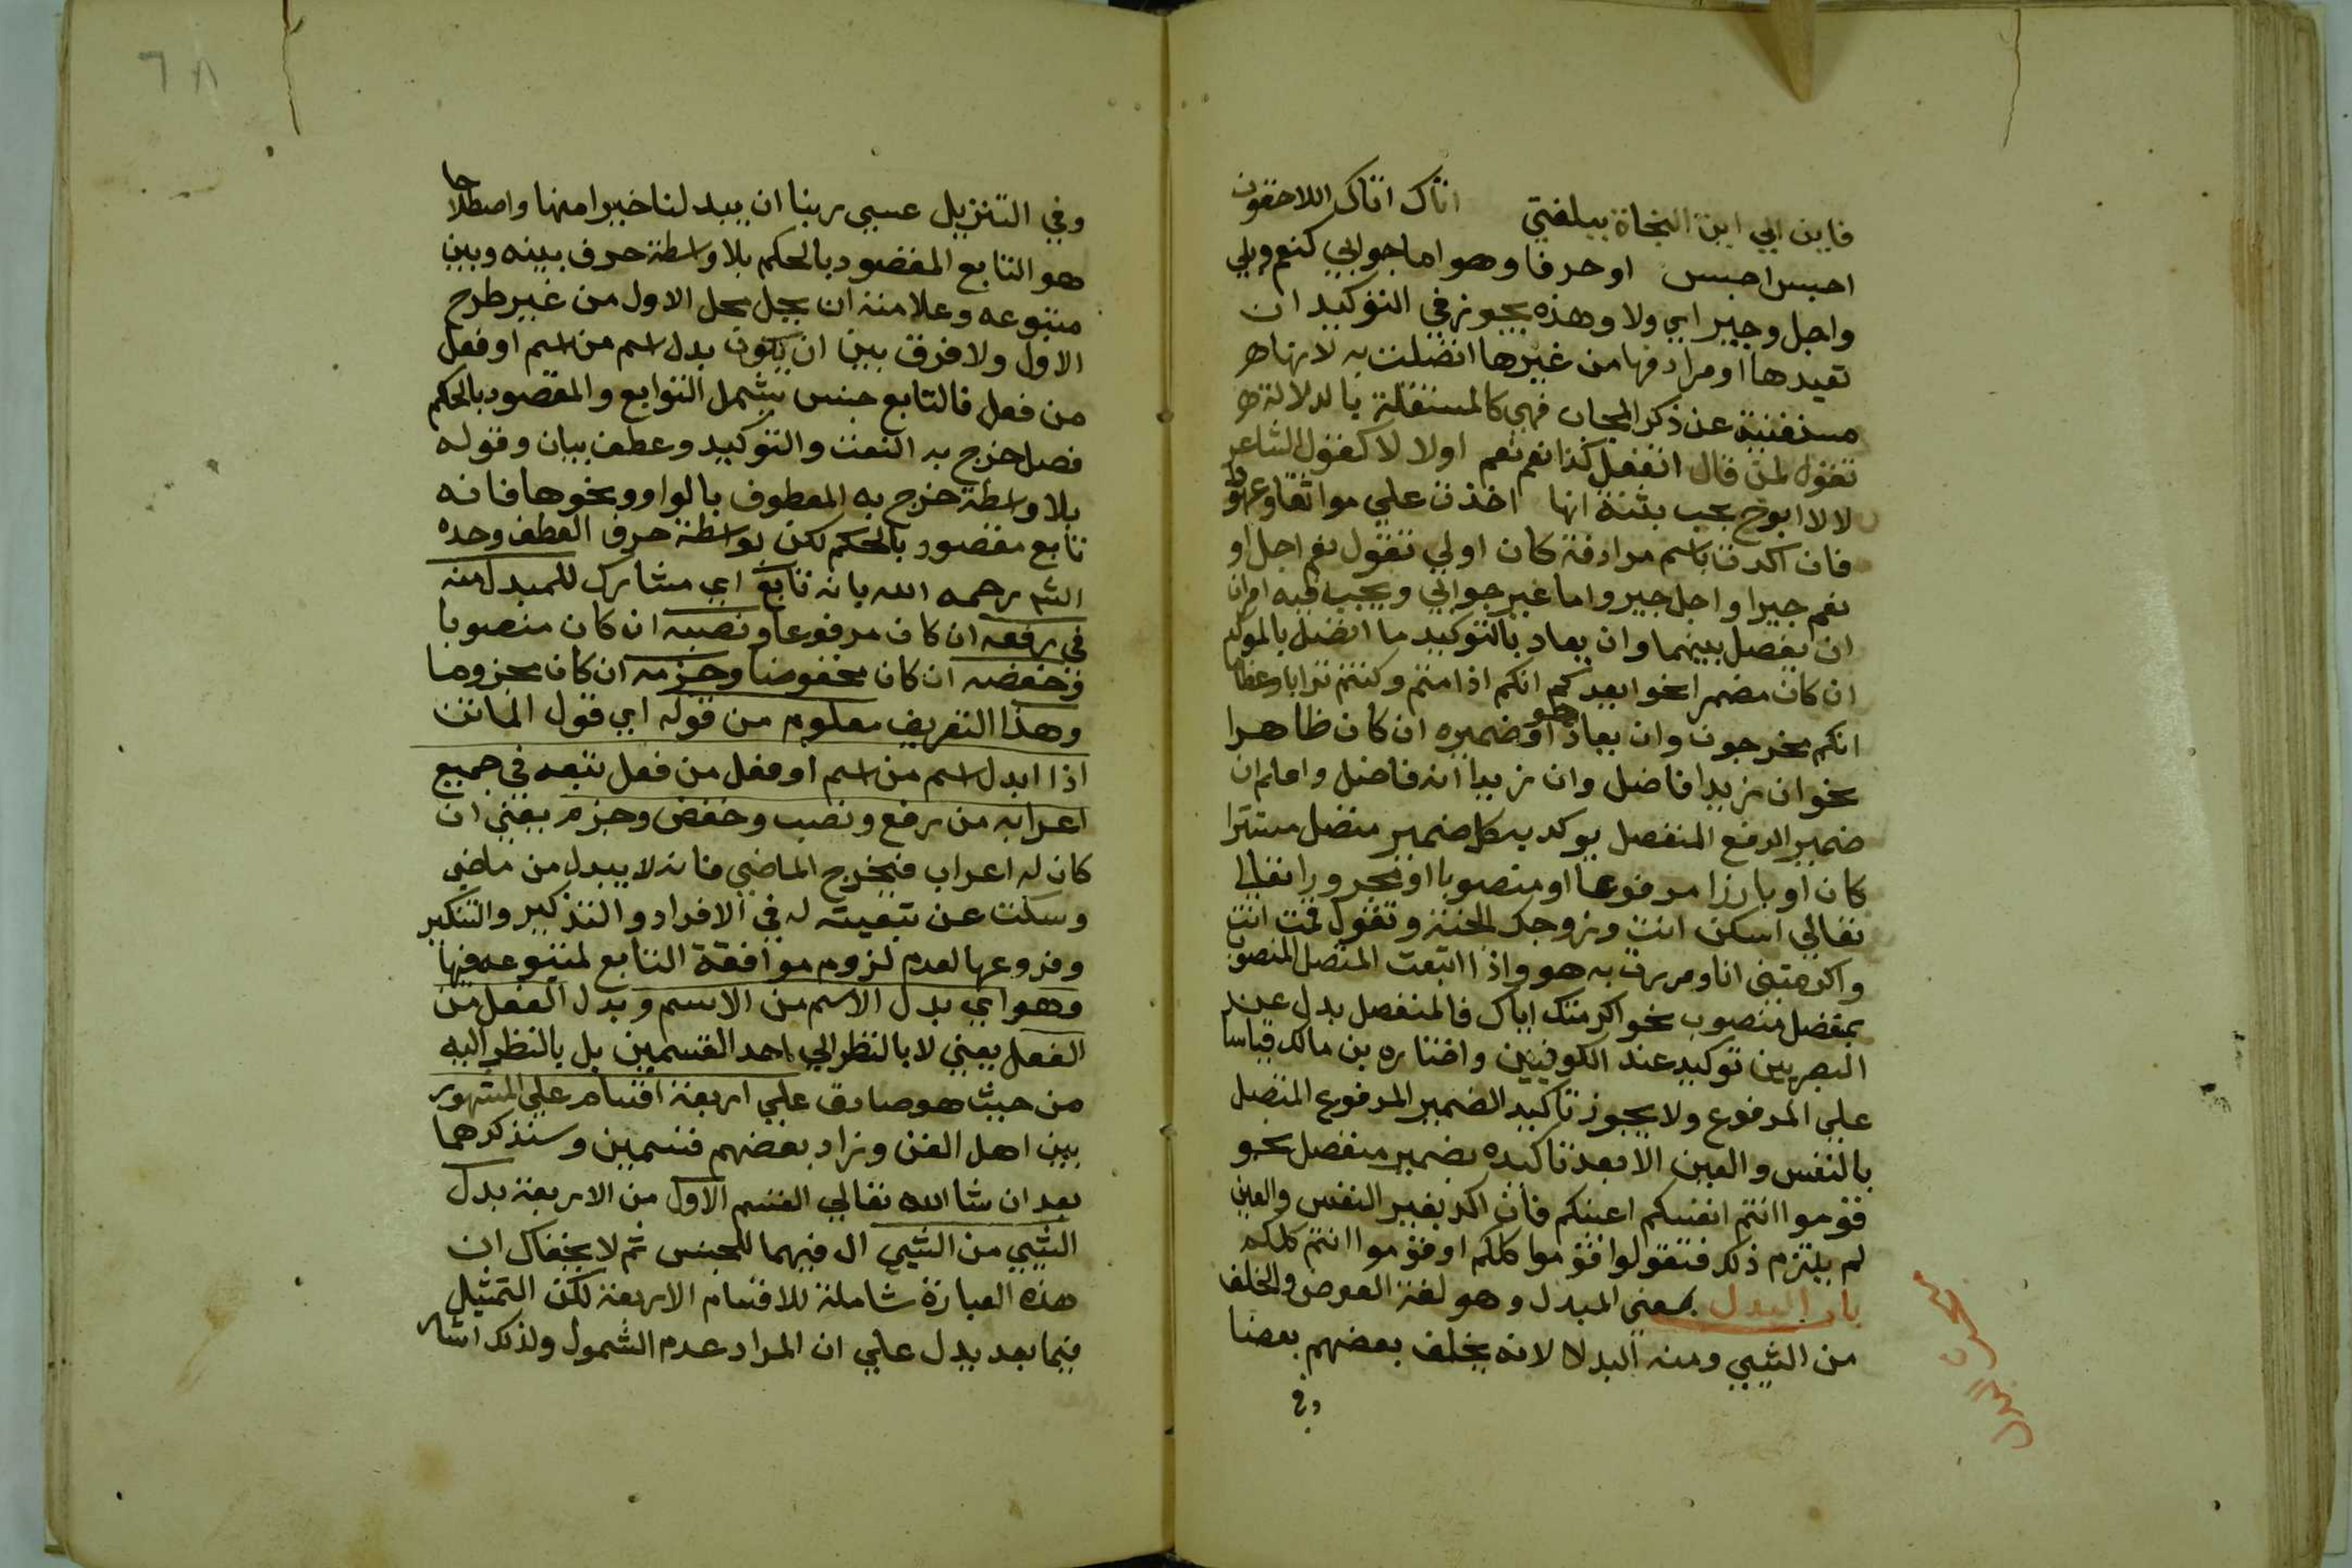 فاين الي اين النجاة ببلغتي اتاك اتاك اللاحقون
احبس احبس او حرفا وهو اما جوابي كنعم وبلي
واجل وجير اي ولا وهذه يجوز في التوكيد ان
تعيدها او مرادفها من غيرها اتصلت به لانها
مستغنية عن ذكر المجاب فهي كالمستقلة بالدلالة
تقول لمن قال اتفعل كذا نعم نعم او لا لا كقول الشاعر
لا لا ابوح بحب بثنة انها اخذت علي مواثقا وعهودا
فان اكدت باسم مرادفة كان اولي تقول نعم اجل او
نعم جير او اجل جير واما غير جوابي ويجب فيه امران
ان يفصل بينهما وان يعاد بالتوكيد ما اتصل بالموكد
ان كان مضمرا نحو ايعدكم انكم اذا متم وكنتم ترابا وعظاما
انكم مخرجون وان يعاد هو او ضميره ان كان ظاهرا
نحو ان زيدا فاضل وان زيدا انه فاضل واعلم ان
ضمير الرفع المنفصل يوكد به كل ضمير متصل مستترا
كان او بارزا مرفوعا او منصوبا او مجرورا نقال
تعالي اسكن انت وزوجك الجنة وتقول قمت انت
واكرمتني انا ومررت به هو واذا اتبعت المتصل المنصوب
بمنفصل منصوب نحو اكرمتك اياك فالمنفصل بدل عند
البصريين توكيد عند الكوفيين واختاره بن مالك قياسا
علي المرفوع ولا يجوز تاكيد الضمير المرفوع المتصل
بالنفس والعين الا بعد تاكيده بضمير منفصل نحو
قوموا انتم انفسكم اعينكم فان اكد بغير النفس والعين
لم يلتزم ذلك فتقولوا قوموا كلكم او قوموا انتم كلكم
باب البدل بمعني المبدل وهو لغة العوض والخلف
من الشيي ومنه البدلا لانه يخلف بعضهم بعضا
وفي
٦٨
وفي التنزيل عسي ربنا ان يبدلنا خيرا منها واصطلاحا
هو التابع المقصود بالحكم بلا واسطة حرف بينه وبين
متبوعه وعلامته ان يحل محل الاول من غير طرح
الاول ولا فرق بين ان يكون بدل اسم من اسم او فعل
من فعل فالتابع جنس يشمل التوابع والمقصود بالحكم
فصل خرج به النعت والتوكيد وعطف بيان وقوله
بلا واسطة خرج به المعطوف بالواو ونحوها فانه
تابع مقصود بالحكم لكن بواسطة حرف العطف وحده
الش رحمه الله بانه تابع اي مشارك للمبدل منه
في رفعه ان كان مرفوعا ونصبه ان كان منصوبا
وخفضه ان كان مخفوضا وجزمه ان كان مجزوما
وهذا التعريف معلوم من قوله اي قول الماتن
اذا ابدل اسم من اسم او فعل من فعل تبعه في جميع
اعرابه من رفع ونصب وخفض وجزم يعني ان
كان له اعراب فيخرج الماضي فانه لا يبدل من ماضي
وسكت عن تبعيته له في الافراد والتذكير والتنكير
وفروعها لعدم لزوم موافقة التابع لمتبوعه فيها
وهو اي بدل الاسم من الاسم وبدل الفعل من
الفعل يعني لا بالنظر الي احد القسمين بل بالنظر اليه
من حيث هو صادق علي اربعة اقسام علي المشهور
بين اهل الفن وزاد بعضهم قسمين وسنذكرهما
بعد ان شا الله تعالي القسم الاول من الاربعة بدل
الشيي من الشيي ال فيهما للجنس ثم لا يخفاك ان
هذه العبارة شاملة للاقسام الاربعة لكن التمثيل
فيما بعد يدل علي ان المراد عدم الشمول ولذلك اشار